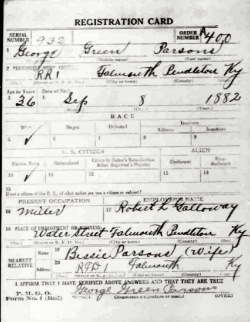 REGISTRATION CARD
SERIAL NUMBER 932 ORDER NUMBER R400
1 George Green Parsons
2 PERMANENT HOME ADDRESS
RR1 Falmouth Pendleton Ky
Age in Years Date of Birth
36 Sep 8 1882
RACE
White Negro Oriental Indian
U. S. CITIZEN ALIEN
Native Born Naturalized
15 If not a citizen of the U. S., of what nation are you a citizen or subject?
PRESENT OCCUPATION EMPLOYER'S NAME
Miller Robert L Galloway
PLACE OF EMPLOYMENT OR BUSINESS
Water Street Falmouth Pendleton Ky
NEAREST RELATIVE
Bessie Parsons (Wife)
Falmouth Ky
I AFFIRM THAT I HAVE VERIFIED ABOVE ANSWERS AND THAT THEY ARE TRUE
P. M. G. O.
Form No. 1 (Red)
George Green Parsons
(OVER)